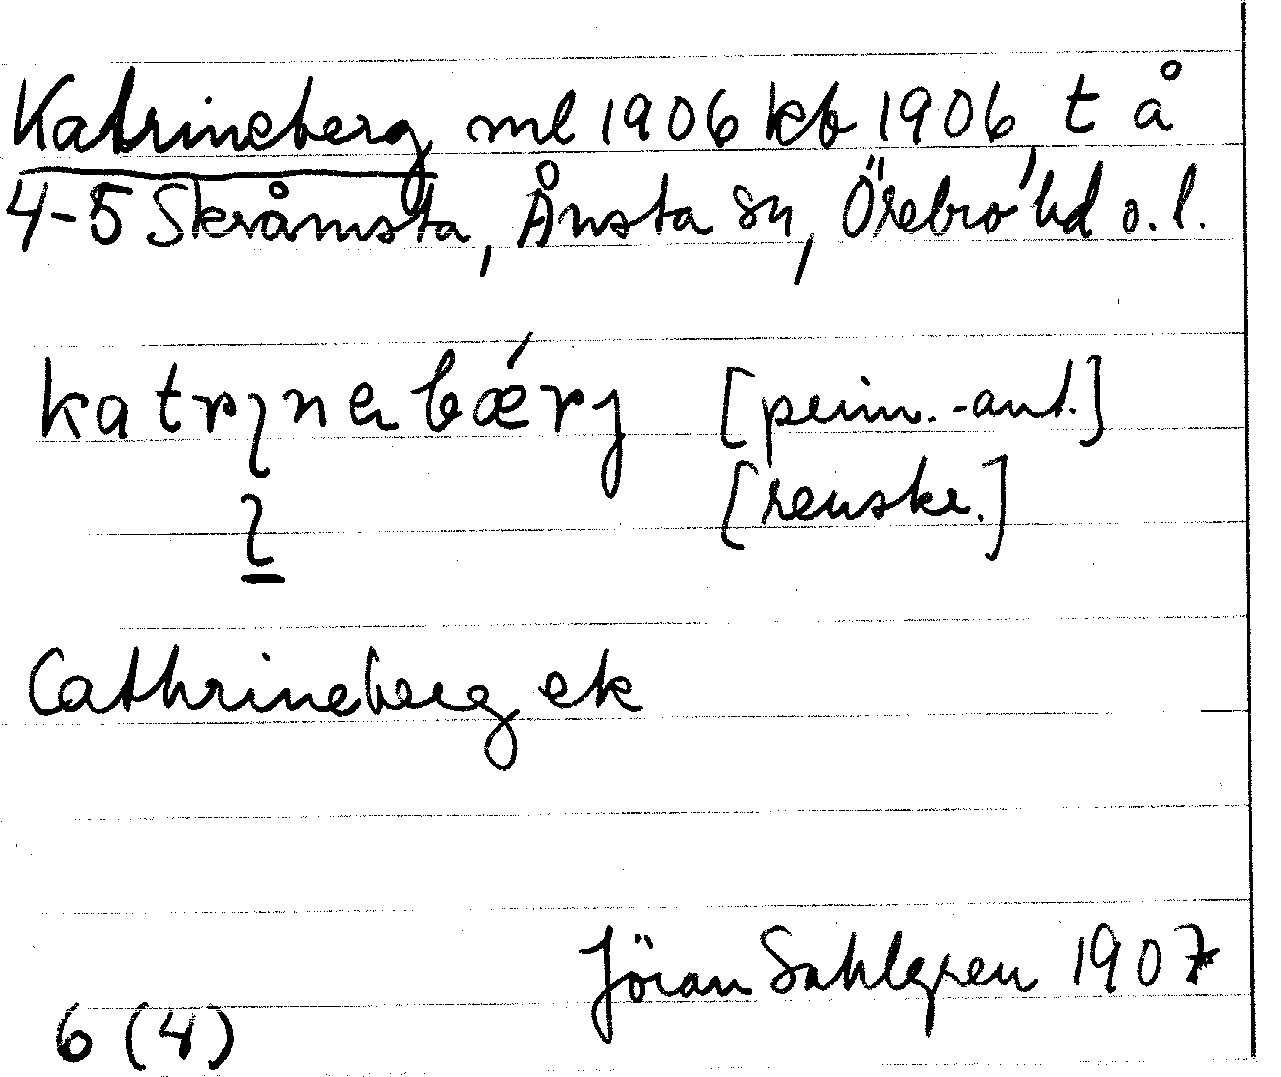 Katrineberg ml 1906 kb 1906 t å
4-5 Skråmsta, Ånsta sn, Örebro hd o. l.
katrınebǽrj [prim.-ant.]
ı [renskr.]
Cathrineberg ek
Jöran Sahlgren 1907
6 (4)